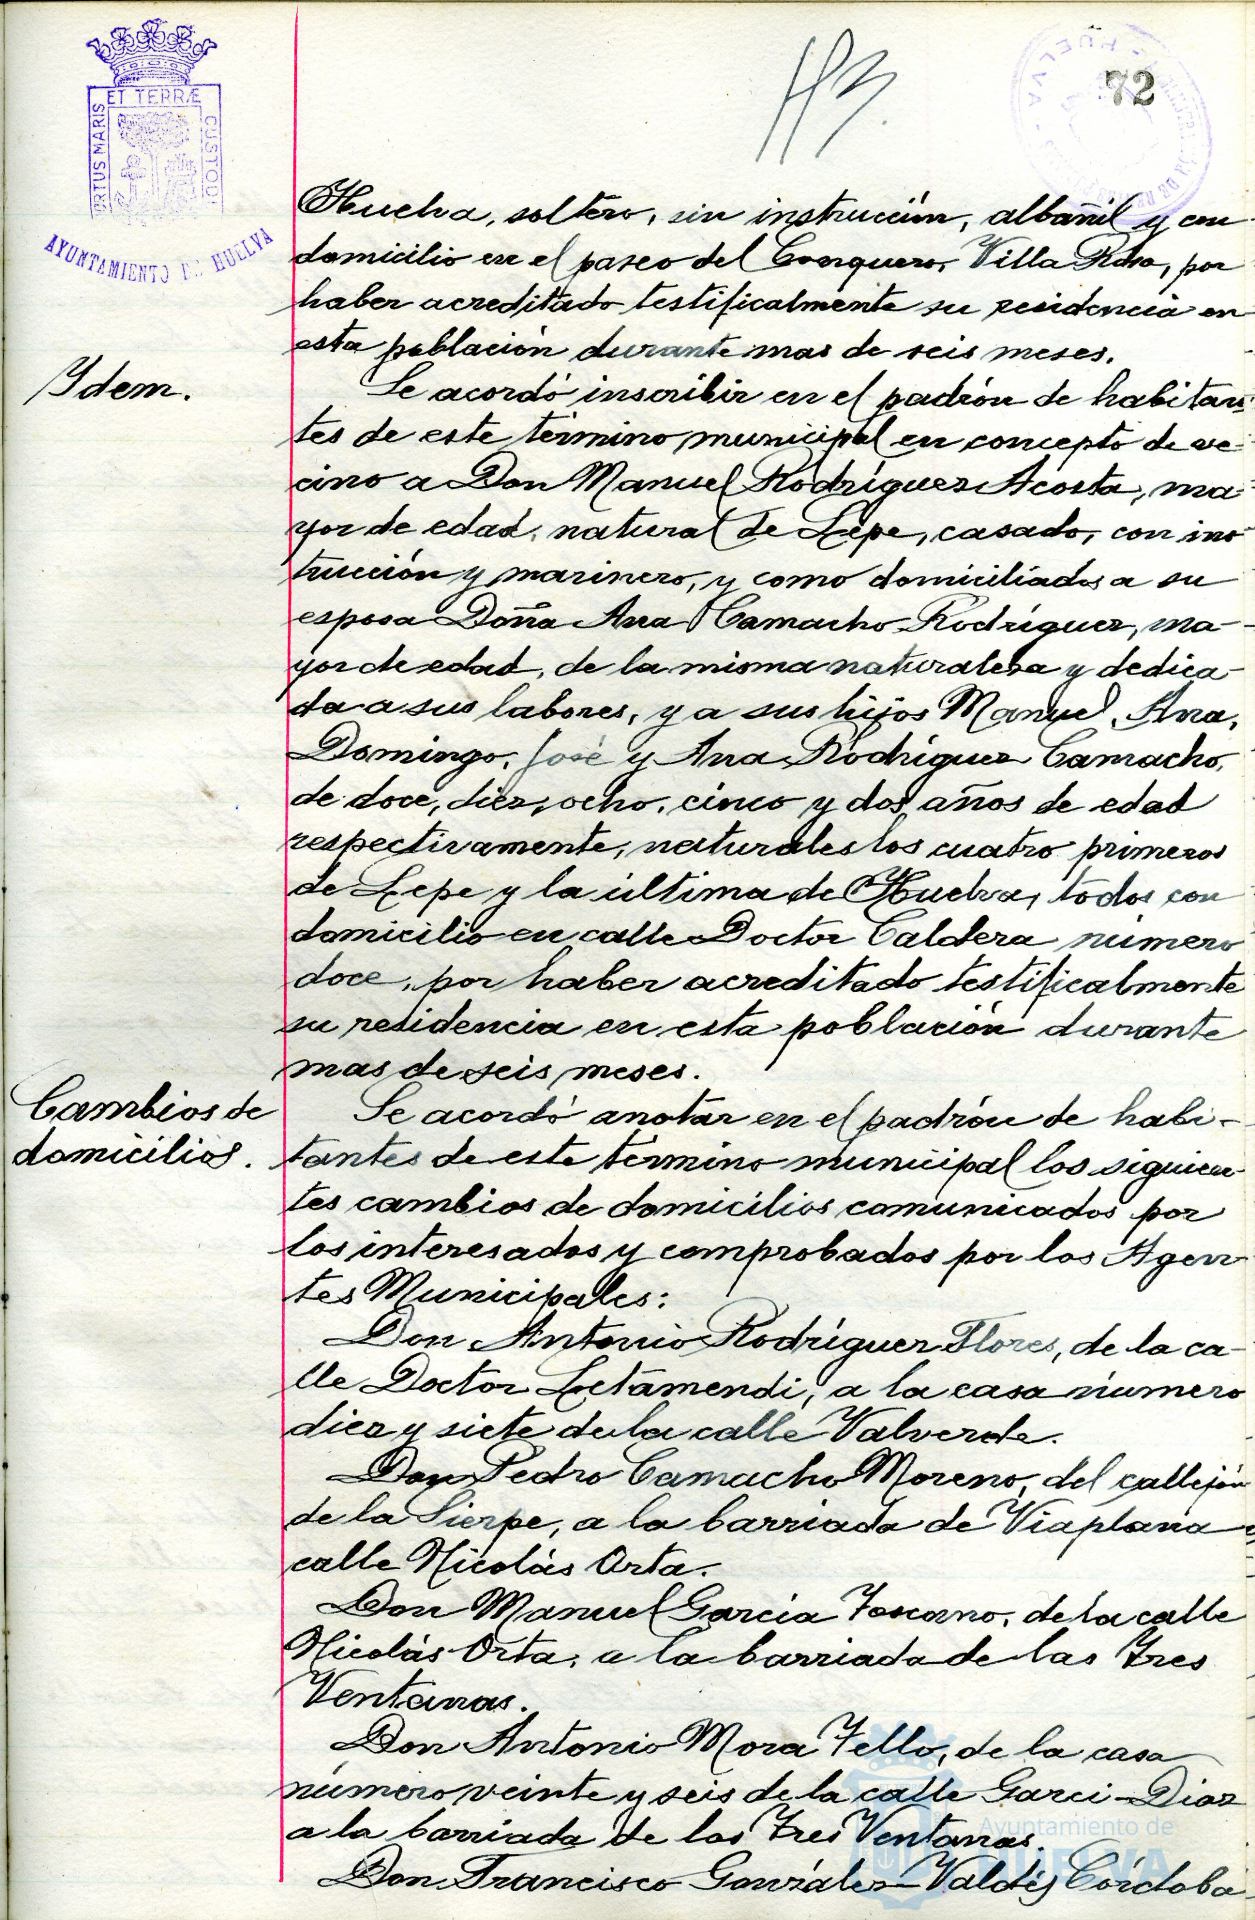 113.
72
ET TERRÆ
PORTUS MARIS
CUSTODI
AYUNTAMIENTO DE HUELVA
HUELVA
Huelva, soltero, sin instrucción, albañil y con
domicilio en el paseo del Conquero, Villa Rosa, por
haber acreditado testificalmente su residencia en
esta población durante mas de seis meses.
Ydem.
Se acordó inscribir en el padrón de habitan-
tes de este término municipal en concepto de ve-
cino a Don Manuel Rodríguez Acosta, ma-
yor de edad, natural de Lepe, casado, con ins-
trucción y marinero, y como domiciliados a su
esposa Doña Ana Camacho Rodríguez, ma-
yor de edad, de la misma naturaleza y dedica-
da a sus labores, y a sus hijos Manuel, Ana,
Domingo, José y Ana Rodríguez Camacho,
de doce, diez, ocho, cinco y dos años de edad
respectivamente, naturales los cuatro primeros
de Lepe y la última de Huelva, todos con
domicilio en calle Doctor Caldera número
doce, por haber acreditado testificalmente
su residencia en esta población durante
mas de seis meses.
Cambios de
domicilios.
Se acordó anotar en el padrón de habi-
tantes de este término municipal los siguien-
tes cambios de domicilios comunicados por
los interesados y comprobados por los Agen-
tes Municipales:
Don Antonio Rodríguez Flores, de la ca-
lle Doctor Letamendi, a la casa número
diez y siete de la calle Valverde.
Don Pedro Camacho Moreno, del callejón
de la Sierpe, a la barriada de Viaplana
calle Nicolás Orta.
Don Manuel García Toscano, de la calle
Nicolás Orta, a la barriada de las Tres
Ventanas.
Don Antonio Mora Tello, de la casa
número veinte y seis de la calle Garci-Diaz
a la barriada de las Tres Ventanas.
Don Francisco González-Valdés Córdoba
Ayuntamiento de
HUELVA